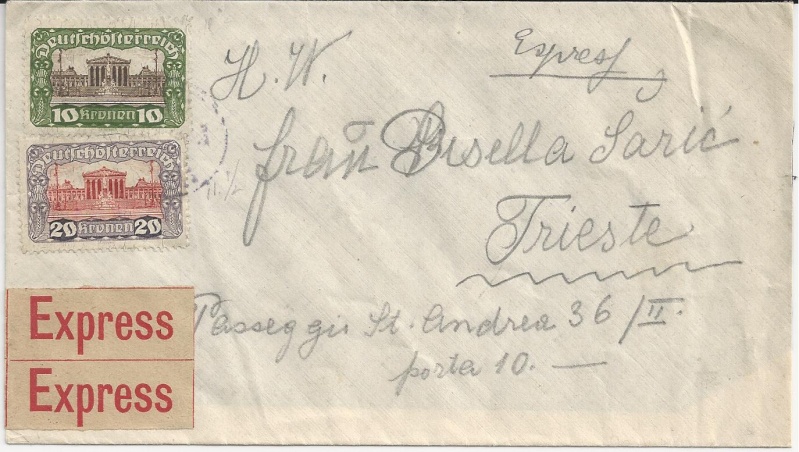 Deutschösterreich
10 Kronen 10
Deutschösterreich
20 Kronen 20
H. W.
Expres
Frau Gisella Sarić.
Trieste
Passeggio St. Andrea 36/II.
porta 10. —
Express
Express